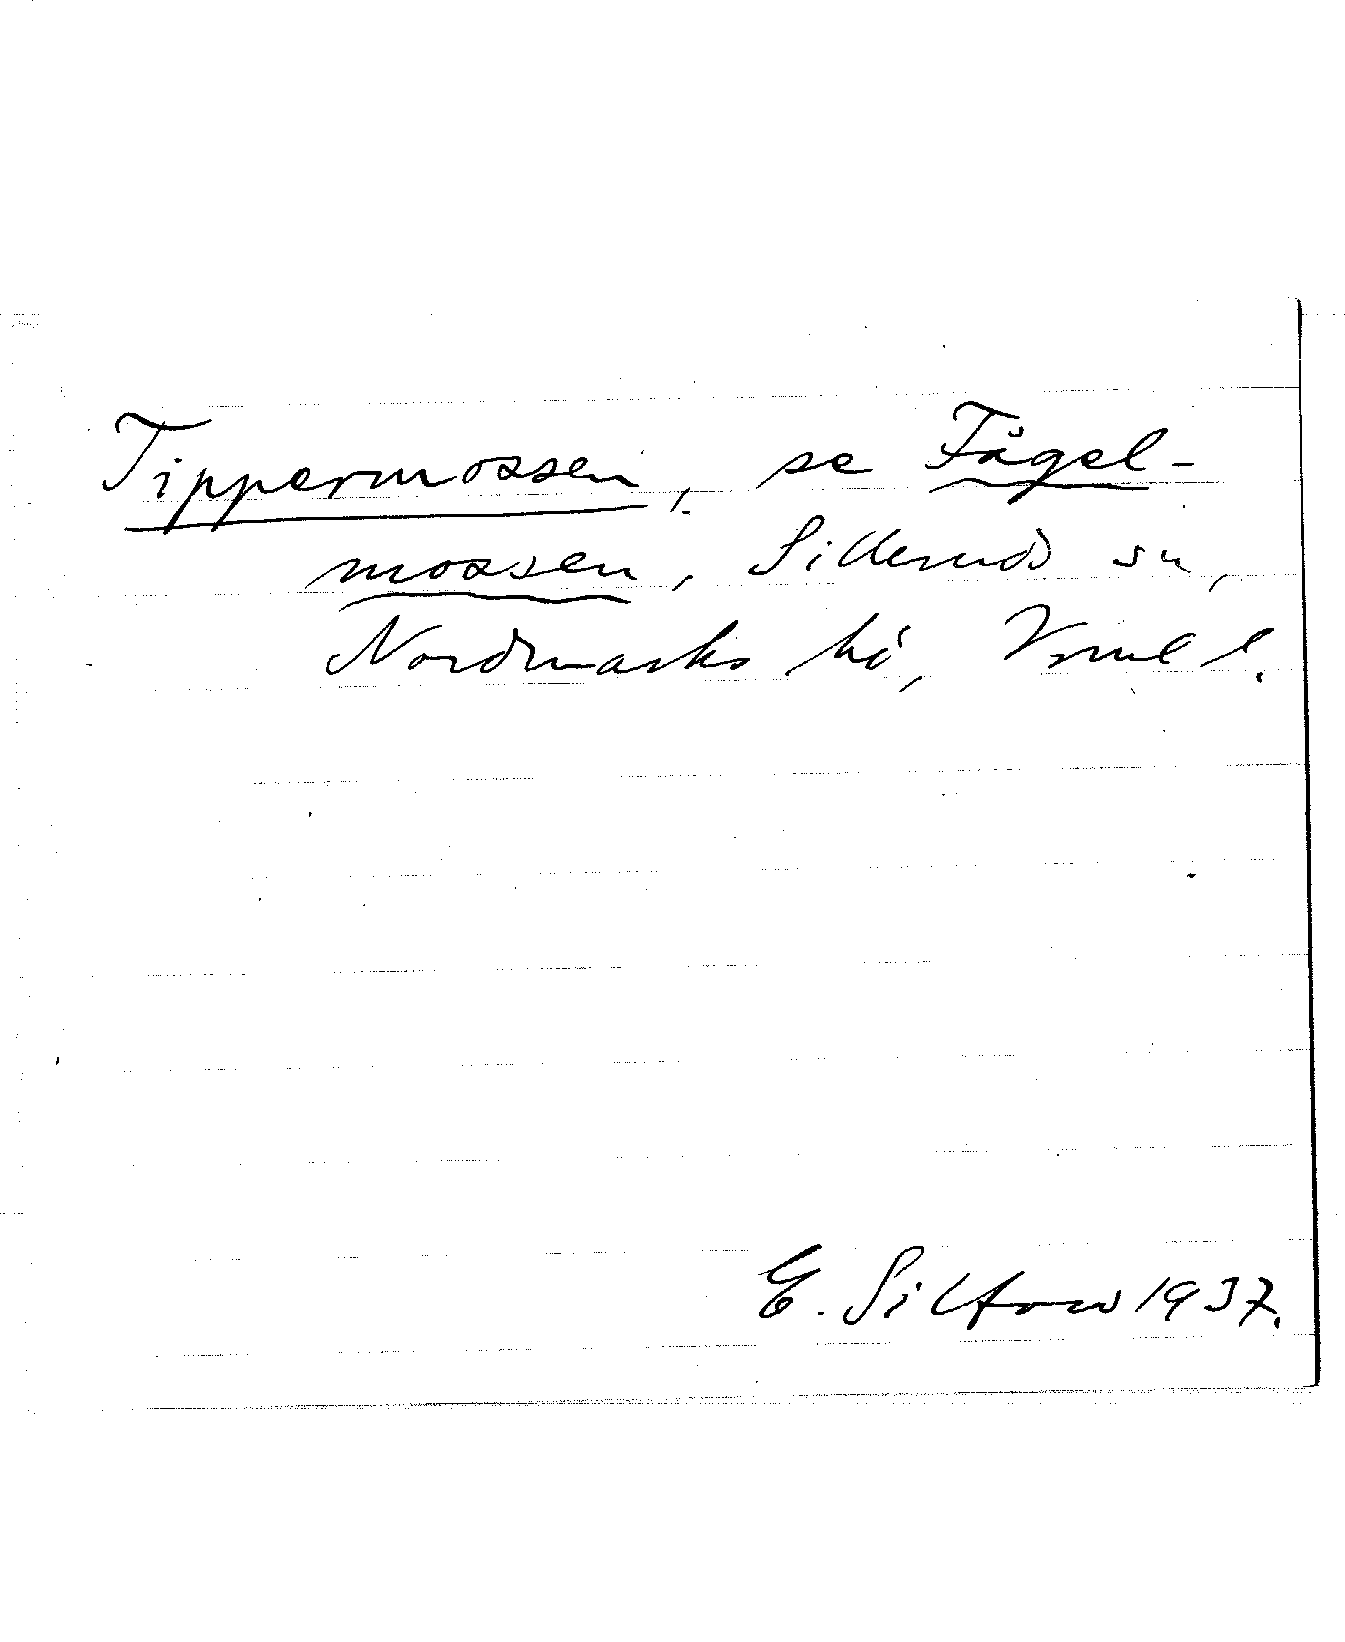 Tippermossen, se Fågel-
mossen, Silleruds sn,
Nordmarks hd, Vrml l.
E. Siltow 1937.